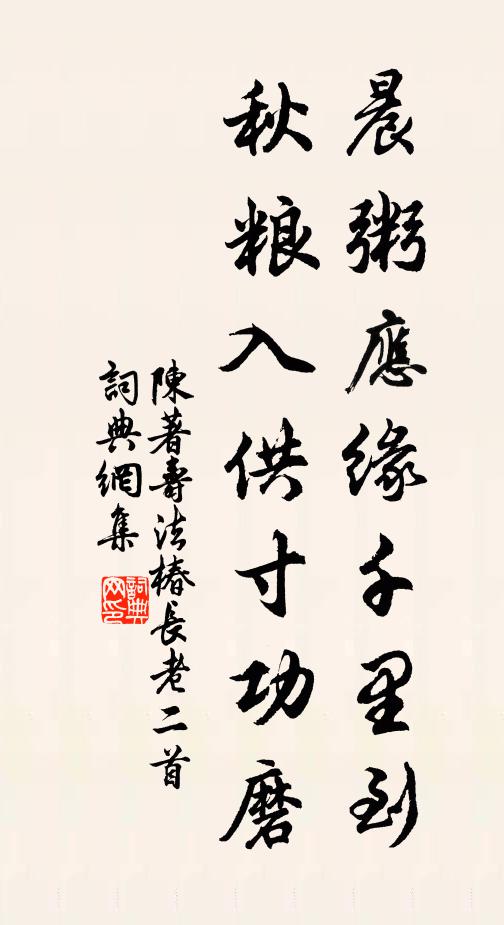 晨粥應緣千里到
秋粮入供寸功磨
陳著壽法椿長老二首
詞典網集
詞典網印